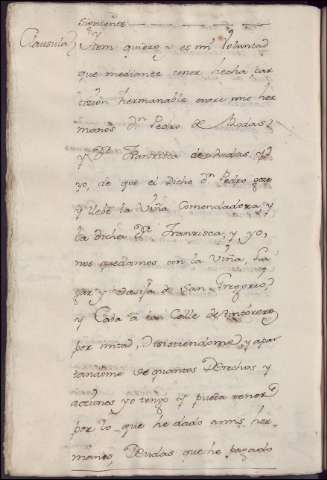 siguiente
Clausula) Yten quiero y es mi Voluntad
que mediante tener hecha par
ticion hermanable entre mis her
manos Dn Pedro de Rodas
y Da Francisca de Rodas, y
yo, de que el dicho Dn Pedro goze
y llebe la Viña Comendadora, y
la dicha Da Francisca, y yo,
nos quedamos con la Viña, La
gar y Vasija de San Gregorio,
y Casa a la Calle de
por mitad, Desistiendome y apar
tandome de quantos Derechos y
acciones yo tengo y pueda tener
por lo que he dado a mis her
manos, Deudas que he pagado